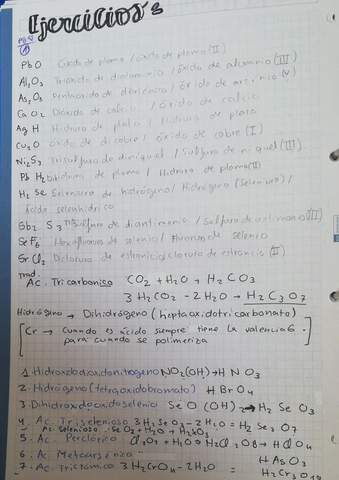 Ejercicios
PbO Óxido de plomo / óxido de plomo (II)
Al2O3 Trióxido de dialuminio / óxido de aluminio (III)
As2O5 Pentaóxido de diarsénico / óxido de arsénico (V)
CaO2 Dióxido de calcio / óxido de calcio
AgH Hidruro de plata / Hidruro de plata
Cu2O óxido de dicobre / óxido de cobre (I)
Ni2S3 Trisulfuro de diniquel / Sulfuro de niquel (III)
PbH2 dihidruro de plomo / Hidruro de plomo (II)
H2Se Seleniuro de hidrógeno / Hidrógeno (Seleniuro) /
Ácido selenhídrico
Sb2S3 Trisulfuro de diantimonio / Sulfuro de antimonio (III)
SeF6 Hexafluoruro de selenio / Fluoruro de selenio
SrCl2 Dicloruro de estroncio / cloruro de estroncio (II)
Trad.
Ac. Tricarbónico CO2 + H2O → H2CO3
3H2CO3 - 2H2O → H2C3O7
Hidrógeno → Dihidrógeno (heptaoxidotricarbonato)
Cr → Cuando es ácido siempre tiene la valencia 6
para cuando se polimeriza
1. Hidroxidodioxidonitrogeno NO2(OH) → HNO3
2. Hidrógeno (tetraoxidobromato) HBrO4
3. Dihidroxidooxidoselenio SeO(OH)2 → H2SeO3
4. Ac. Triselenioso 3H2SeO3 - 2H2O = H2Se3O7
Ac. Selenioso SeO2 + H2O → H2SeO3
5. Ac. Perclórico Cl2O7 + H2O → H2Cl2O8 → HClO4
6. Ac. Metaarsénico HAsO3
7. Ac. Tricrómico 3H2CrO4 - 2H2O = H2Cr3O10